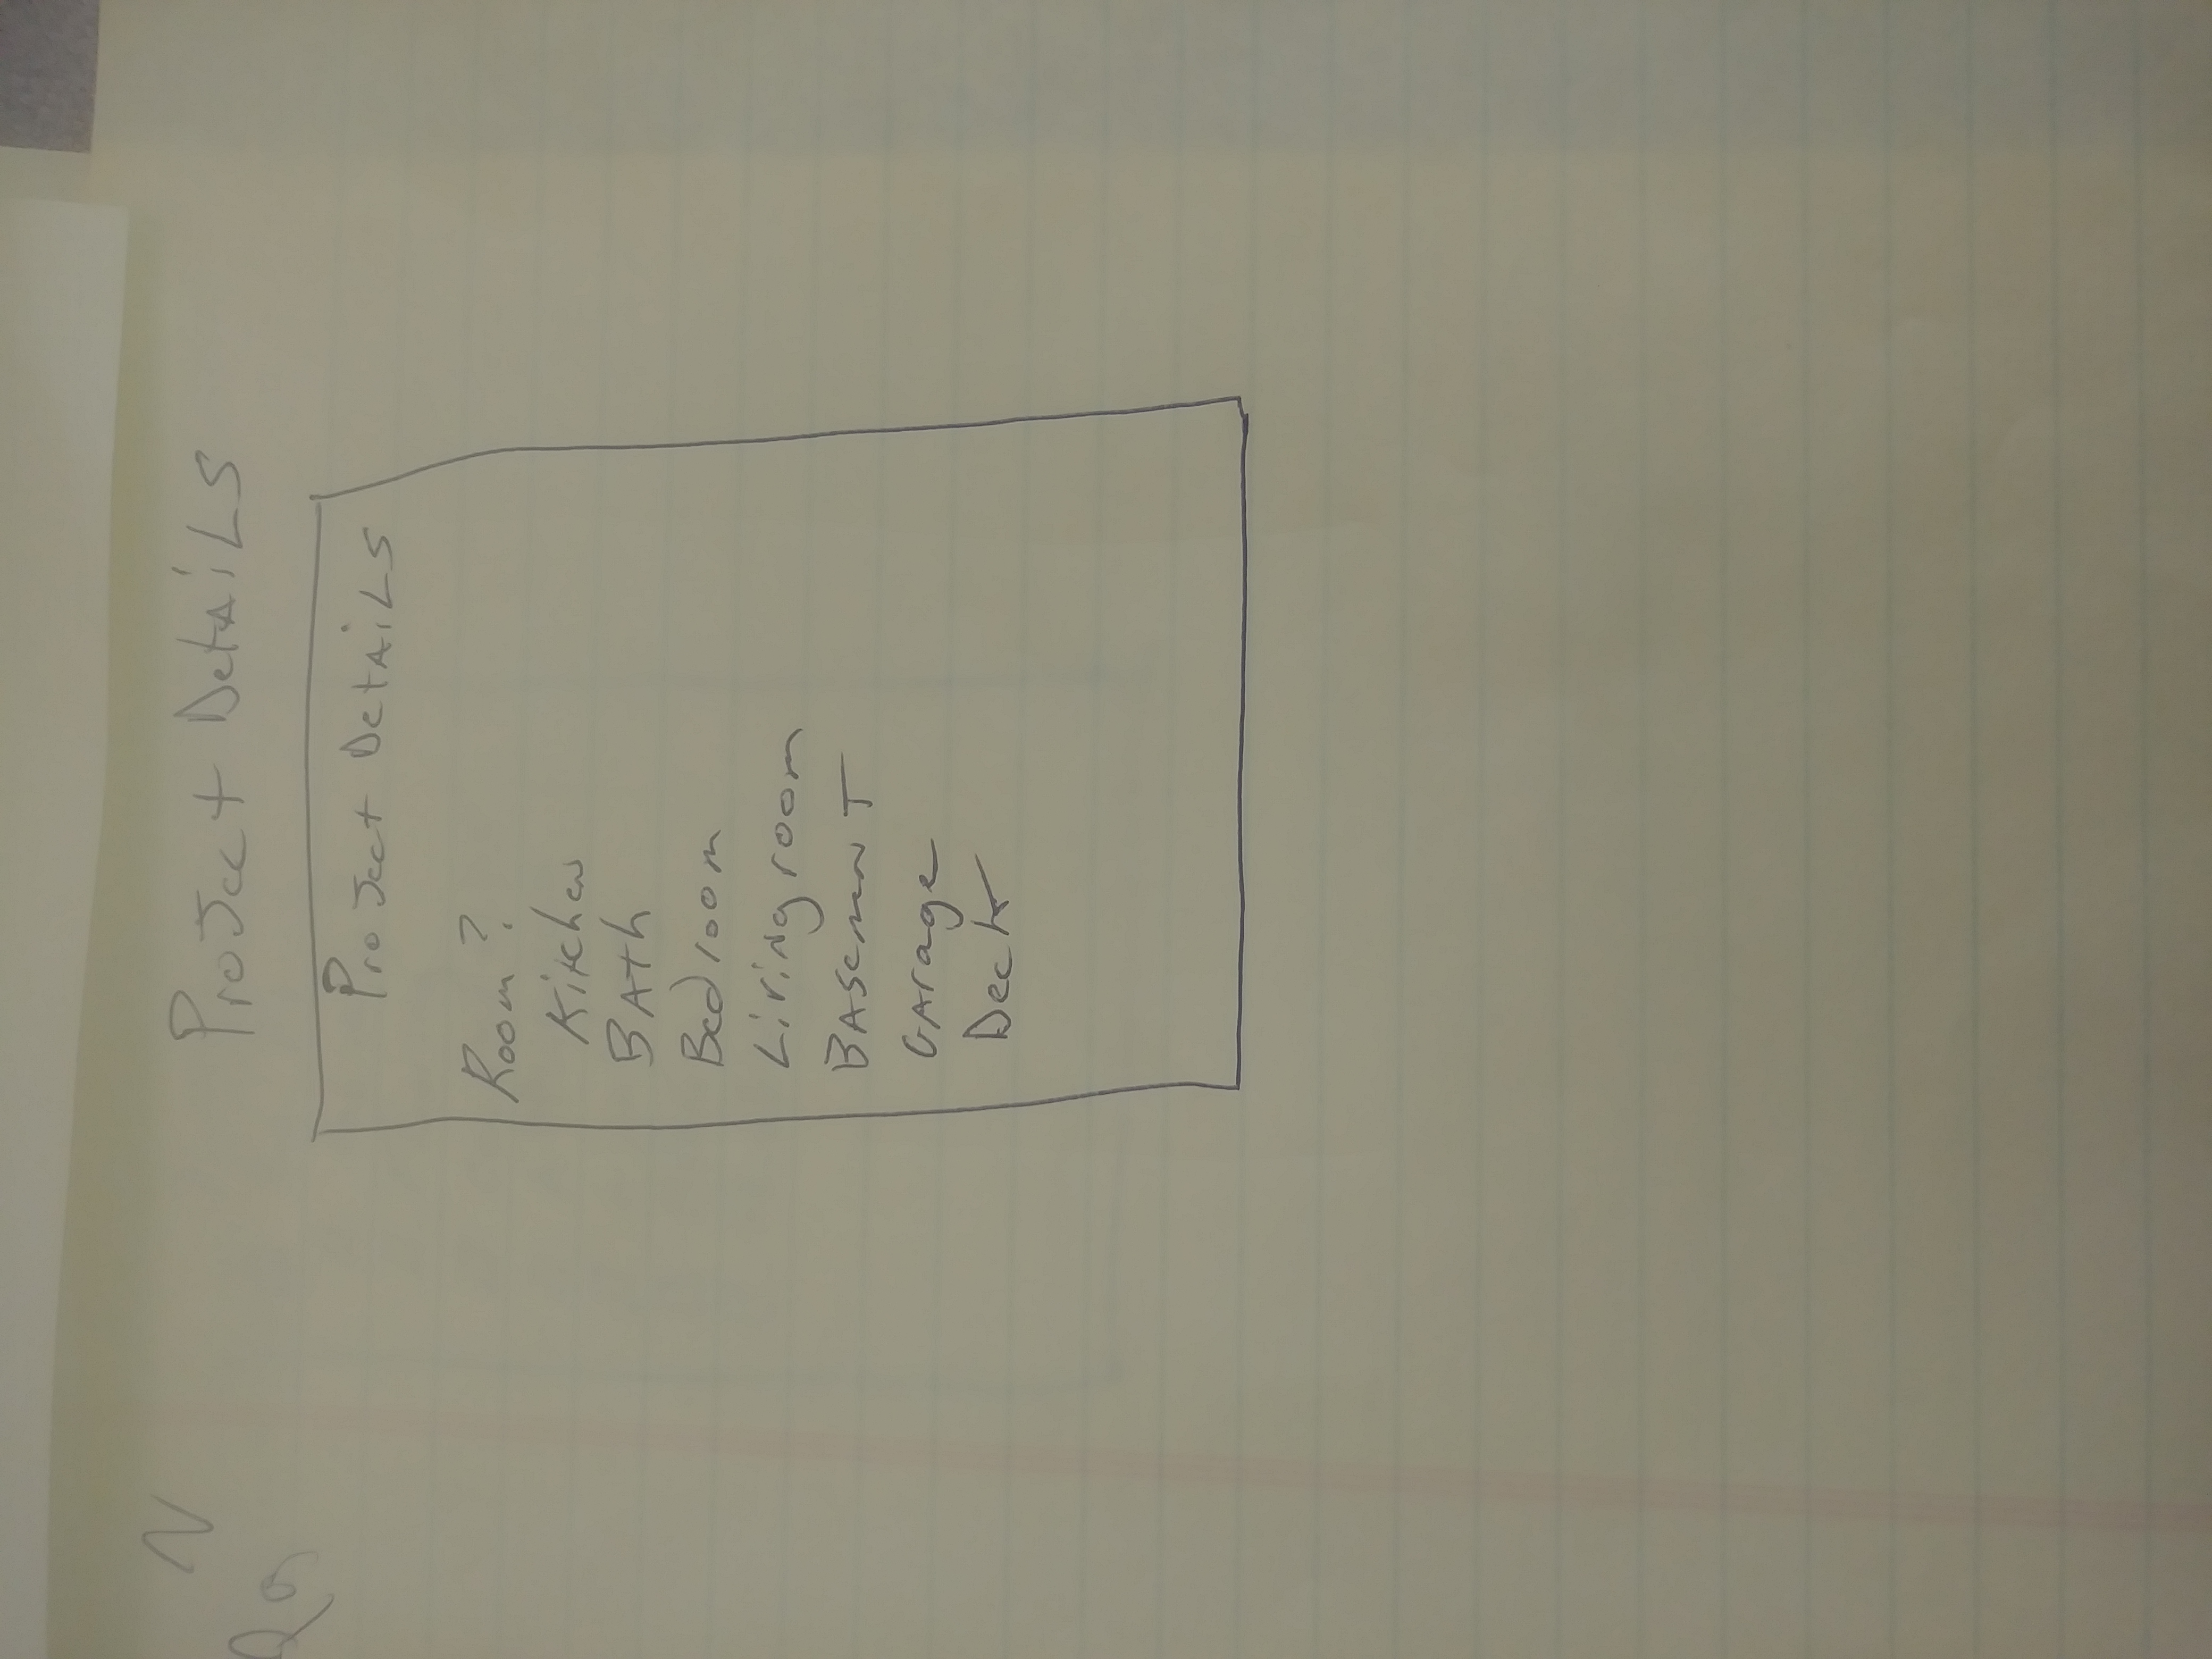 N
Project Details
Project Details
Room?
Kitchen
Bath
Bedroom
Living room
Basement
Garage
Deck